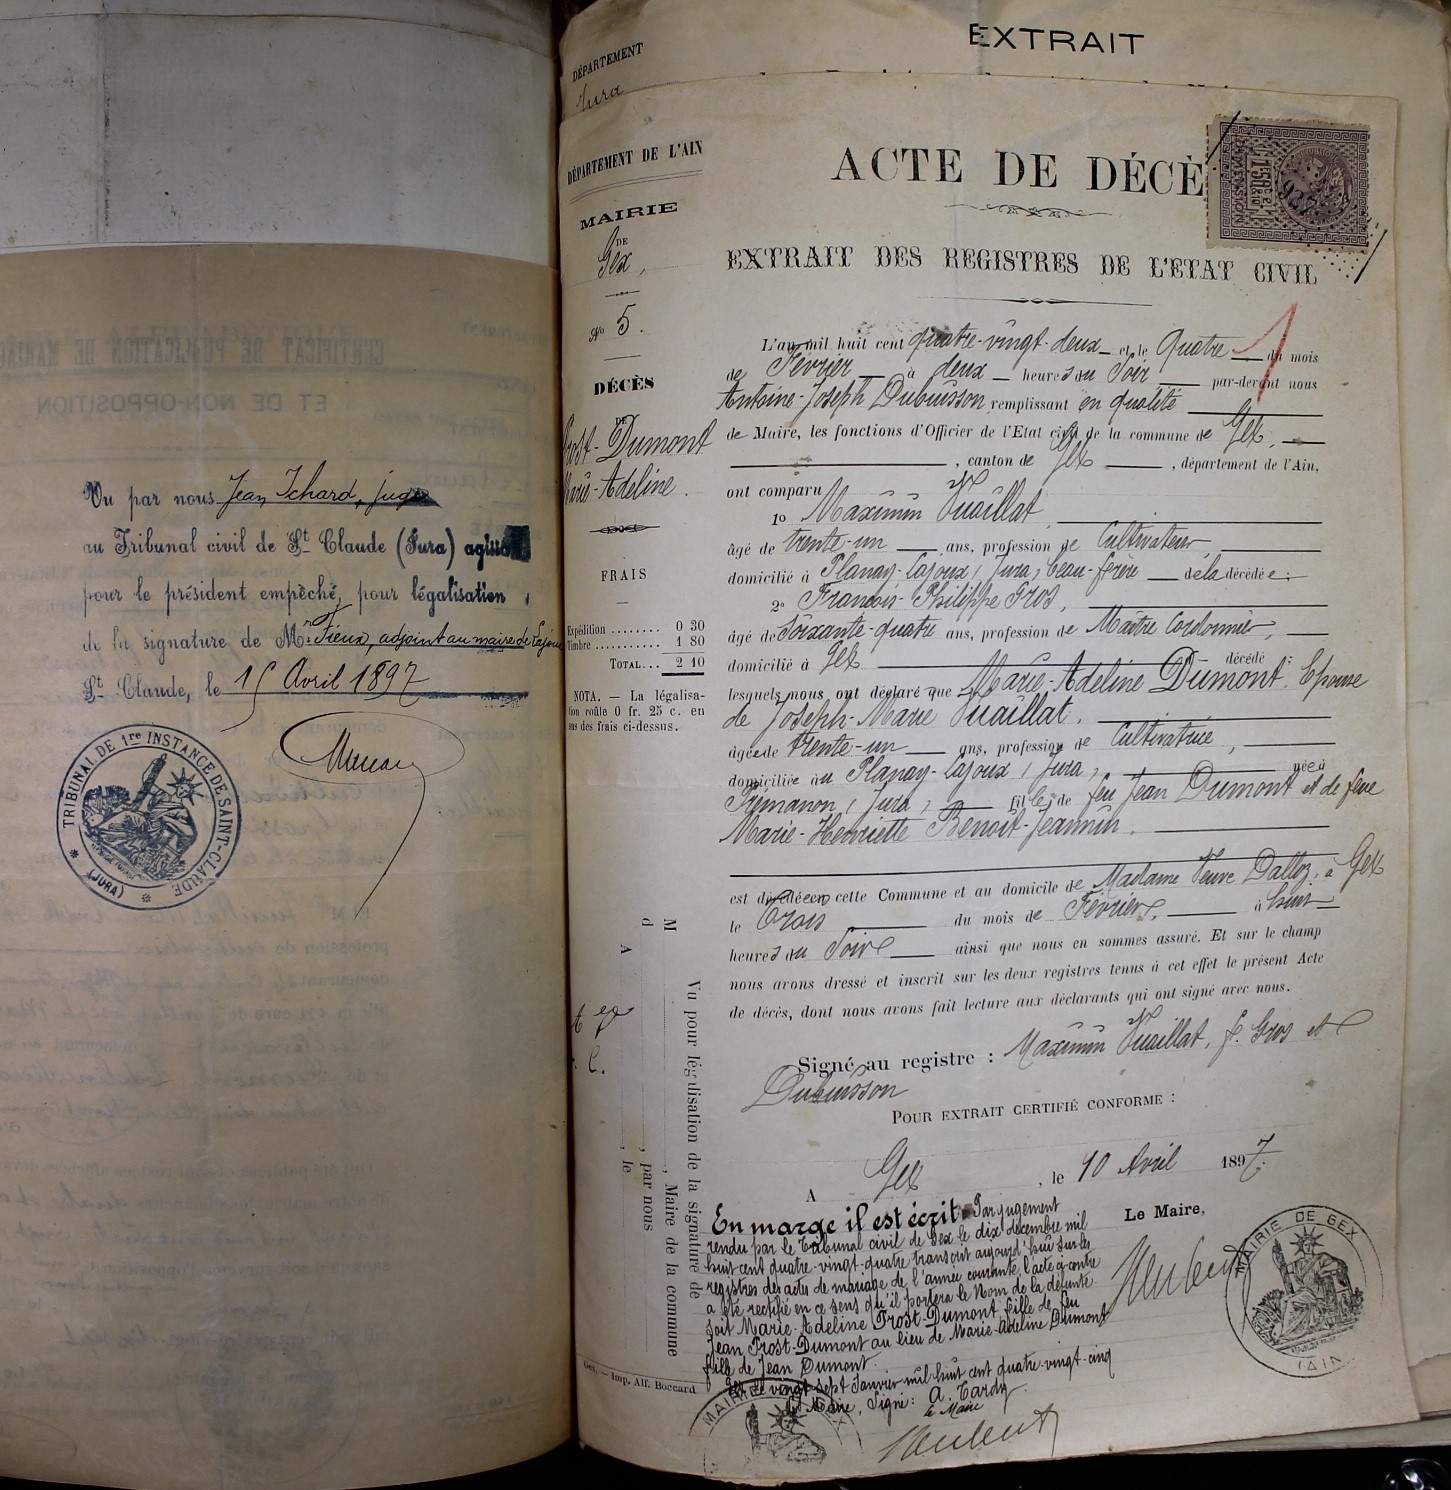 Vu par nous Jean Ichard, juge
au Tribunal civil de St Claude (Jura) agissa
pour le président empêché, pour légalisation
de la signature de Mr Fieux, adjoint au maire de Lajoux
St Claude, le 15 Avril 1897
TRIBUNAL DE 1re INSTANCE DE SAINT-CLAUDE
(JURA)
EXTRAIT
DÉPARTEMENT
Jura
DÉPARTEMENT DE L'AIN
MAIRIE
DE
Gex,
No 5.
DÉCÈS
DE
Frost-Dumont
Marie-Adeline.
FRAIS
Expédition ........ 0 30
Timbre ........... 1 80
TOTAL... 2 10
NOTA. — La légalisa-
tion coûte 0 fr. 25 c. en
sus des frais ci-dessus.
Vu pour légalisation de la signature de
M , Maire de la commune
d , par nous
A , le
Gex. — Imp. Alf. Boccard
ACTE DE DÉCÈ
EXTRAIT DES REGISTRES DE L'ETAT CIVIL
L'an mil huit cent quatre-vingt-deux et le Quatre du mois
de Février à deux heures du Soir par-devant nous
Antoine-Joseph Dubuisson remplissant en qualité
de Maire, les fonctions d'Officier de l'Etat civil de la commune de Gex,
, canton de Gex , département de l'Ain,
ont comparu
1o Maximin Vuaillat
âgé de trente-un ans, profession de Cultivateur,
domicilié à Planay-Lajoux, Jura, beau-frère de la décédée;
2o François-Philippe Gros,
âgé de Soixante-quatre ans, profession de Maître Cordonnier,
domicilié à Gex décédé :
lesquels nous ont déclaré que Marie-Adeline Dumont. Epouse
de Joseph-Marie Vuaillat,
âgée de trente-un ans, profession de Cultivatrice,
domiciliée au Planay-Lajoux, Jura, née à
Prémanon, Jura, fille de feu Jean Dumont et de feue
Marie-Henriette Benoit-Jeannin,
est décédée en cette Commune et au domicile de Madame Veuve Dalloz, à Gex
le Trois du mois de Février, à huit
heures du Soir ainsi que nous en sommes assuré. Et sur le champ
nous avons dressé et inscrit sur les deux registres tenus à cet effet le présent Acte
de décès, dont nous avons fait lecture aux déclarants qui ont signé avec nous.
Signé au registre : Maximin Vuaillat, f. Gros et
Dubuisson
POUR EXTRAIT CERTIFIÉ CONFORME :
A Gex , le 10 Avril 1897.
Le Maire,
En marge il est écrit: Par jugement
rendu par le Tribunal civil de Gex le dix décembre mil
huit cent quatre-vingt-quatre transcrit aujourd'hui sur les
registres des actes de mariage de l'année courante, l'acte ci-contre
a été rectifié en ce sens qu'il portera le Nom de la défunte
soit Marie-Adeline Frost-Dumont fille de feu
Jean Frost-Dumont au lieu de Marie-Adeline Dumont
fille de Jean Dumont.
Gex le vingt-sept Janvier mil huit cent quatre-vingt-cinq
Le Maire, Signé: A. Tardy
Le Maire
MAIRIE DE GEX
(AIN)
MAIRIE DE GEX